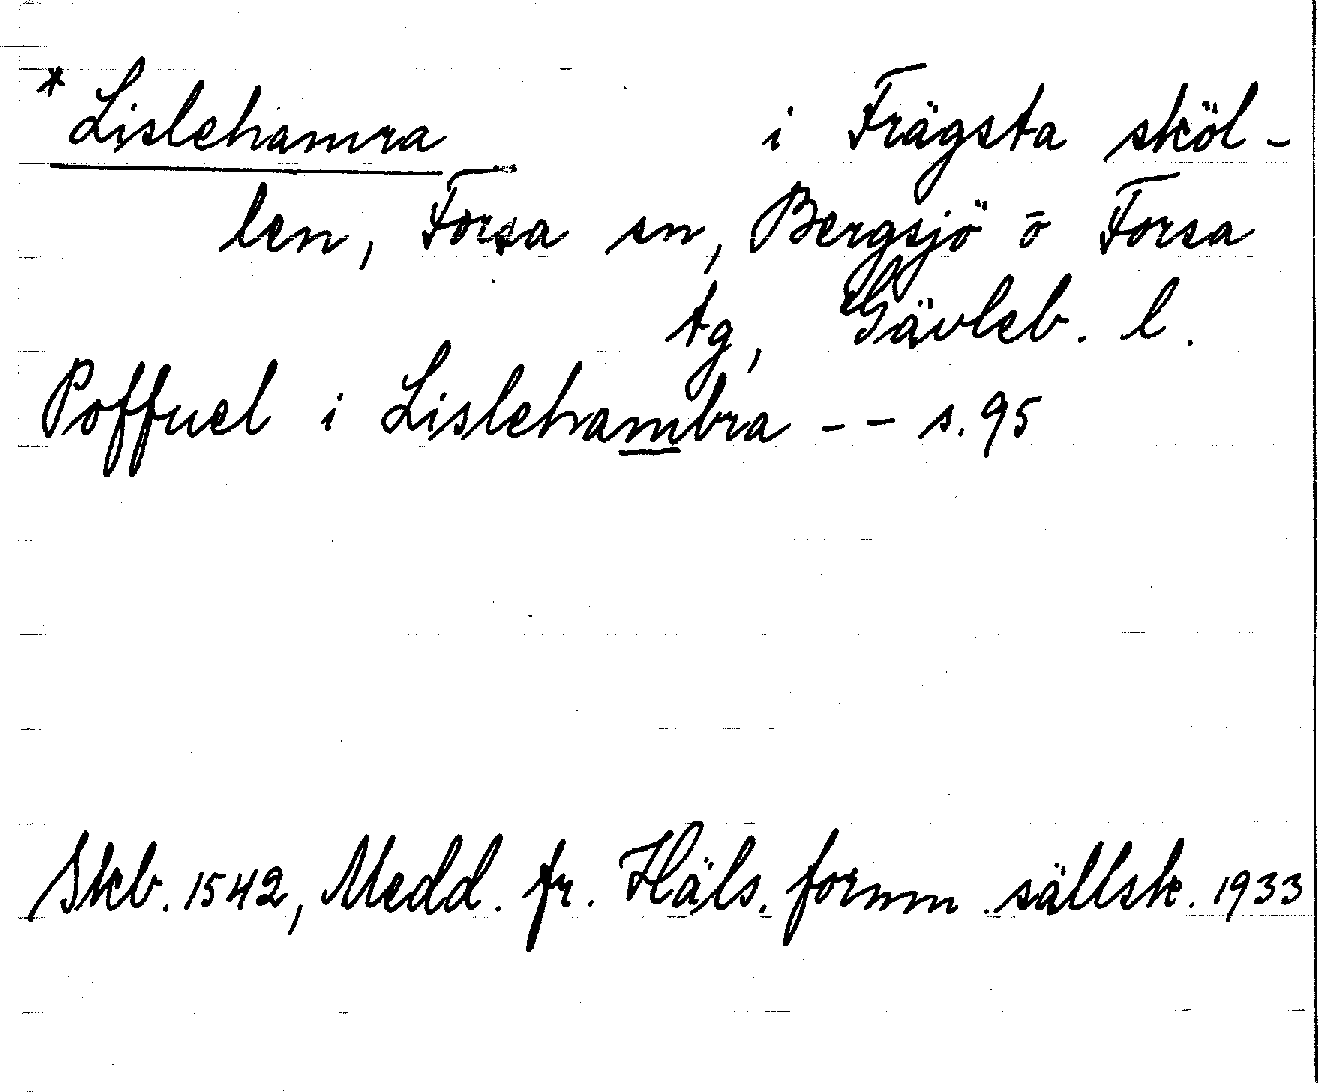 * Lislehamra i Frägsta sköl-
len, Forsa sn, Bergsjö o Forsa
tg, Gävleb. l.
Poffuel i Lislehambra -- s. 95
Skb. 1542, Medd. fr. Häls. fornm. sällsk. 1933